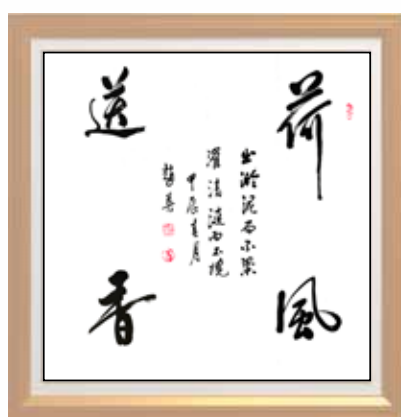 荷風
送香
出淤泥而不染
濯清漣而不
甲辰月